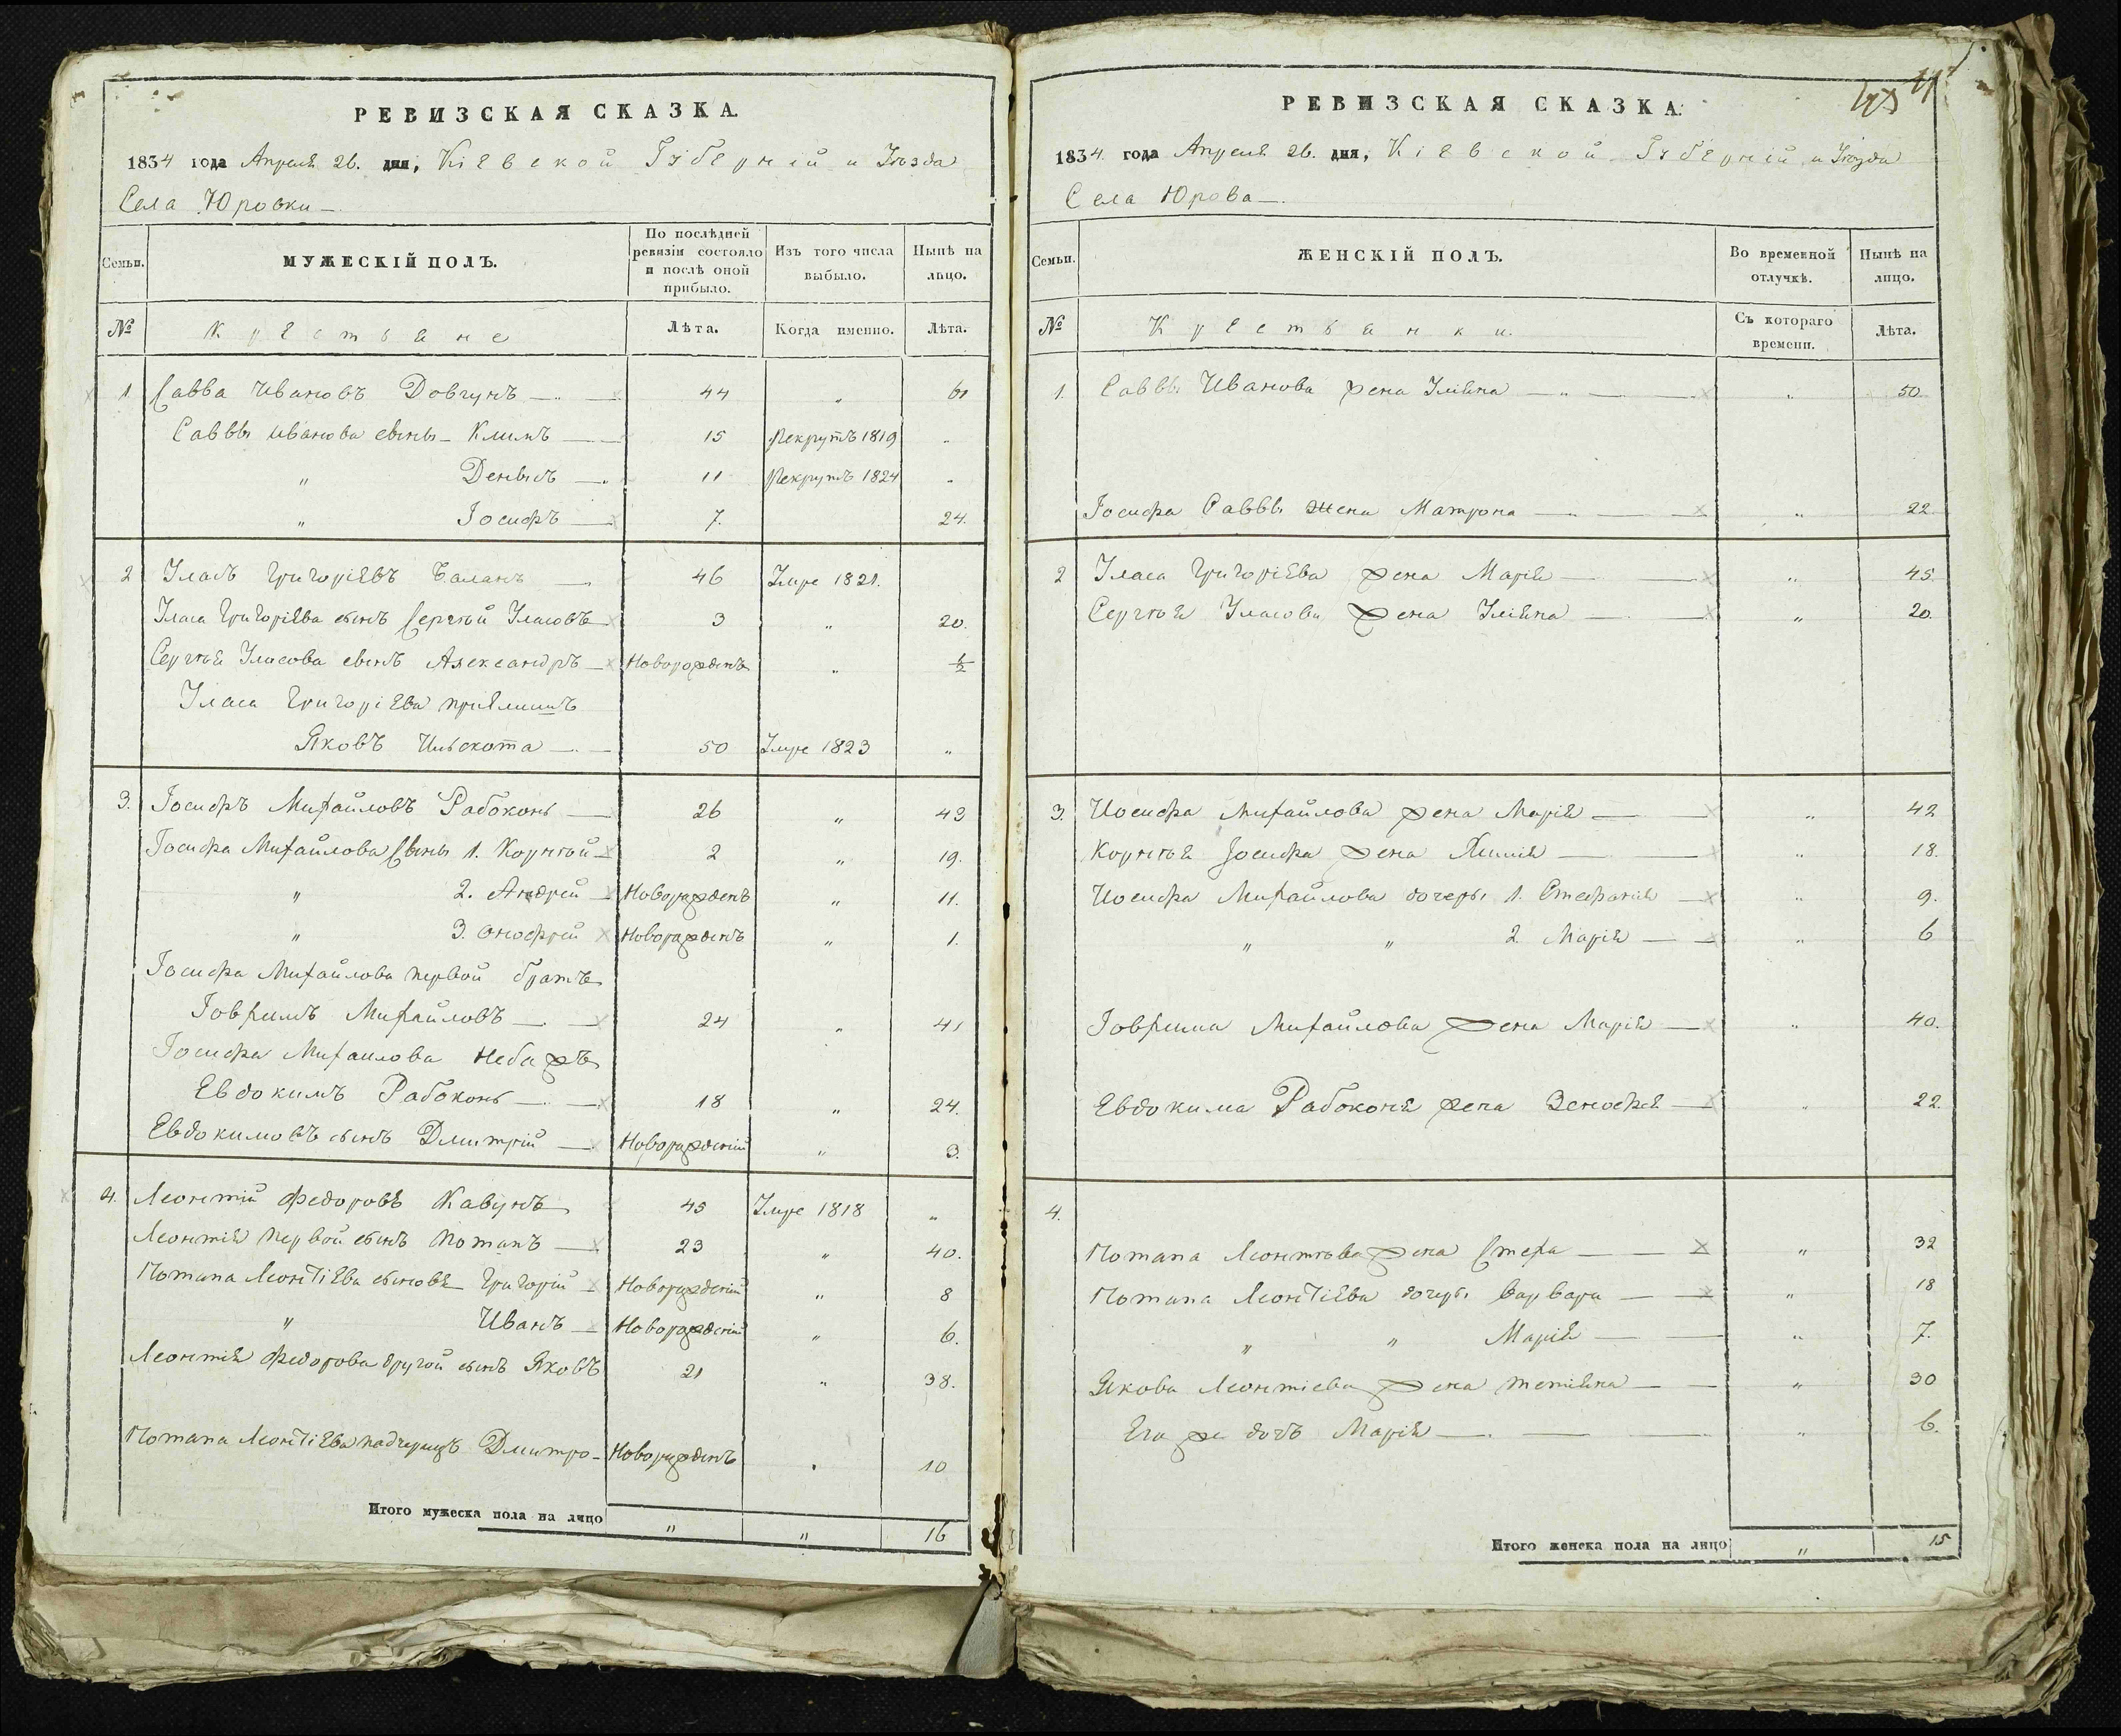 РЕВИЗСКАЯ СКАЗКА.
1834 года Апреля 26. дня, Кіевской Губерній и Уезда
Села Юровки
Семьи.
МУЖЕСКІЙ ПОЛЪ.
По послѣдней ревизіи состояло и послѣ оной прибыло.
Изъ того числа выбыло.
Нынѣ на лицо.
№ Крестьяне Лѣта. Когда именно. Лѣта.
1 Савва Ивановъ Довгунъ 44 " 61
Саввы Иванова сыны Климъ 15 Рекрутъ 1819 "
" Денысъ 11 Рекрутъ 1824 "
" Іосифъ 7. 24.
2 Уласъ Григоріевъ Баланъ 46 Умре 1821.
Уласа Григоріева сынъ Сергѣй Уласовъ 3 " 20.
Сергѣя Уласова сынъ Александръ Новорожденъ " 1/2
Уласа Григоріева пріймишъ
Яковъ 50 Умре 1823 "
3. Іосифъ Михайловъ Рабоконь 26 " 43
Іосифа Михайлова Сыны 1. Корнѣй 2 " 19.
" 2. Андрей Новорожденъ " 11.
" 3. Онофрей Новорожденъ " 1.
Іосифа Михайлова первой братъ
Іовхимъ Михайловъ 24 " 41
Іосифа Михаилова Небожъ
Евдокимъ Рабоконь 18 " 24.
Евдокимовъ сынъ Дмитрій Новорожденій " 3.
4. Леонтій Федоровъ Кавунъ 45 Умре 1818 "
Леонтія первой сынъ Потапъ 23 " 40.
Потапа Леонтіева сыновя Григорій Новорожденій " 8
" Иванъ Новорожденій " 6.
Леонтія Федорова другой сынъ Яковъ 21 " 38.
Потапа Леонтіева Дмитро Новорожденъ " 10
Итого мужеска пола на лицо " " 16
РЕВИЗСКАЯ СКАЗКА.
1834. года Апреля 26. дня, Кіевской Губерній и Уезда
Села Юрова
Семьи.
ЖЕНСКІЙ ПОЛЪ.
Во временной отлучкѣ.
Нынѣ на лицо.
№ Крестьянки. Съ котораго времени. Лѣта.
1. Саввы Иванова жена Уляна " 50.
Іосифа Саввы жена Матрона " 22.
2 Уласа Григоріева жена Марія " 45.
Сергѣя Уласова жена Уляна " 20.
3. Иосифа Михайлова жена Марія " 42
Корнѣя Іосифа жена " 18.
Иосифа Михайлова дочеры 1. Стефанія " 9.
" " 2. Марія " 6
Іовхима Михайлова жена Марія " 40.
Евдокима Рабоконя жена Зенофія " 22.
4.
Потапа Леонтѣва жена Стеха " 32
Потапа Леонтіева дочеры Варвара " 18
" " Марія " 7.
Якова Леонтіева жена Тетіяна " 30
Его же дочъ Марія " 6.
Итого женска пола на лицо " 15